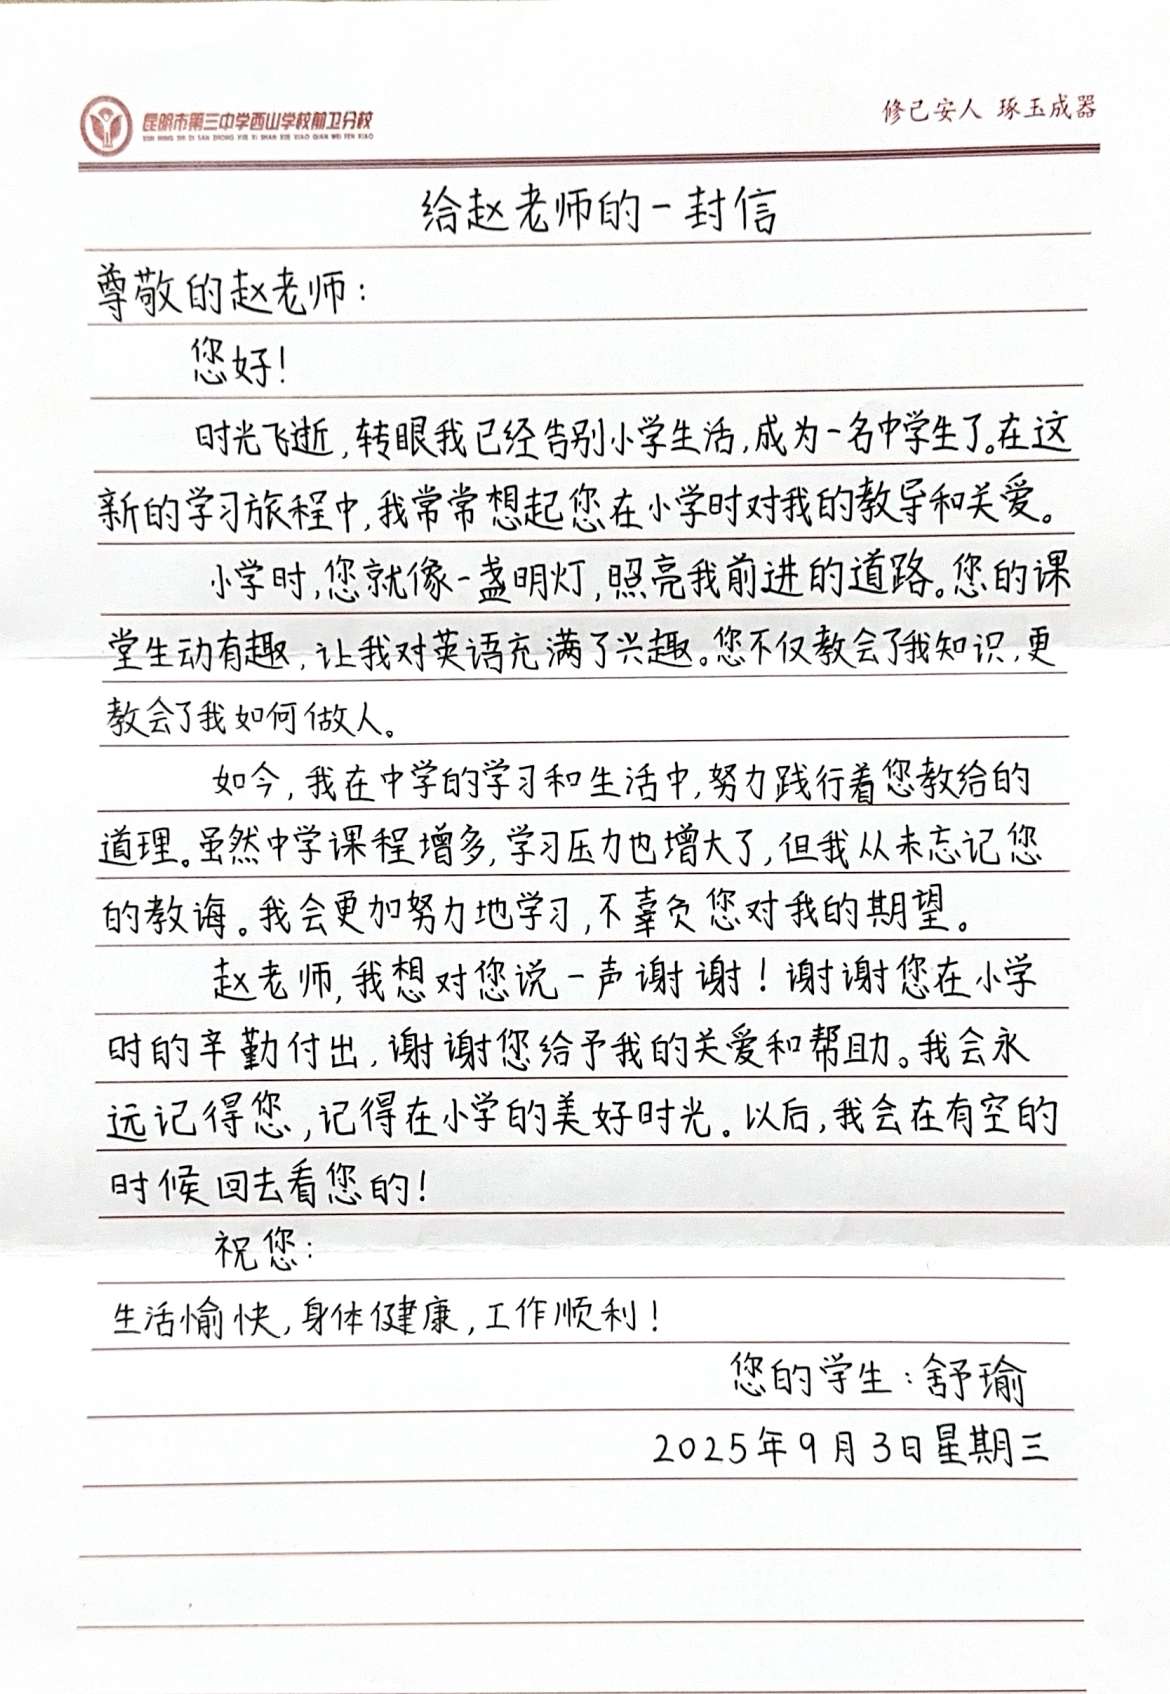 昆明市第三中学西山学校前卫分校
KUN MING SHI DI SAN ZHONG XUE XI SHAN XUE XIAO QIAN WEI FEN XIAO
修己安人 琢玉成器
给赵老师的一封信
尊敬的赵老师：
您好！
时光飞逝，转眼我已经告别小学生活，成为一名中学生了。在这
新的学习旅程中，我常常想起您在小学时对我的教导和关爱。
小学时，您就像一盏明灯，照亮我前进的道路。您的课
堂生动有趣，让我对英语充满了兴趣。您不仅教会了我知识，更
教会了我如何做人。
如今，我在中学的学习和生活中，努力践行着您教给的
道理。虽然中学课程增多，学习压力也增大了，但我从未忘记您
的教诲。我会更加努力地学习，不辜负您对我的期望。
赵老师，我想对您说一声谢谢！谢谢您在小学
时的辛勤付出，谢谢您给予我的关爱和帮助。我会永
远记得您，记得在小学的美好时光。以后，我会在有空的
时候回去看您的！
祝您：
生活愉快，身体健康，工作顺利！
您的学生：舒瑜
2025年9月3日星期三